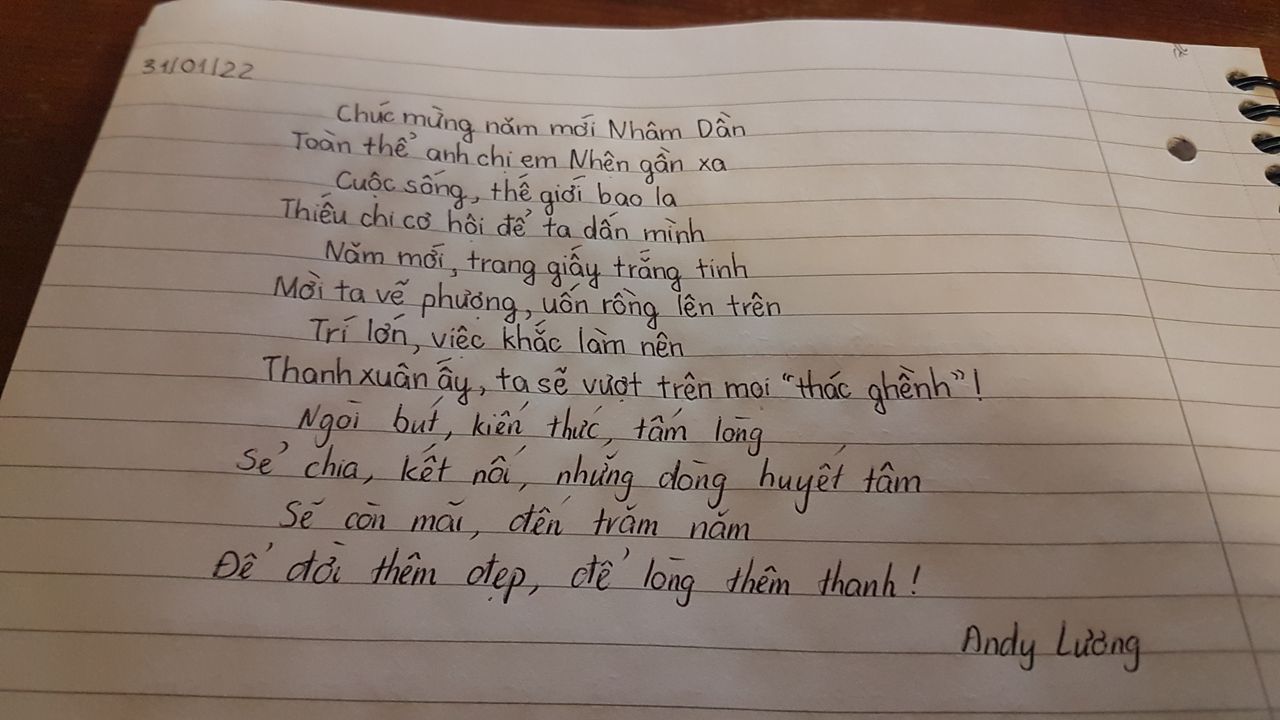 31/01/22
Chúc mừng năm mới Nhâm Dần
Toàn thể anh chị em Nhện gần xa
Cuộc sống, thế giới bao la
Thiếu chi cơ hội để ta dấn mình
Năm mới, trang giấy trắng tinh
Mời ta vẽ phượng, uốn rồng lên trên
Trí lớn, việc khắc làm nên
Thanh xuân ấy, ta sẽ vượt trên mọi "thác ghềnh"!
Ngòi bút, kiến thức, tấm lòng
Sẻ chia, kết nối, những dòng huyết tâm
Sẽ còn mãi, đến trăm năm
Để đời thêm đẹp, để lòng thêm thanh!
Andy Lương